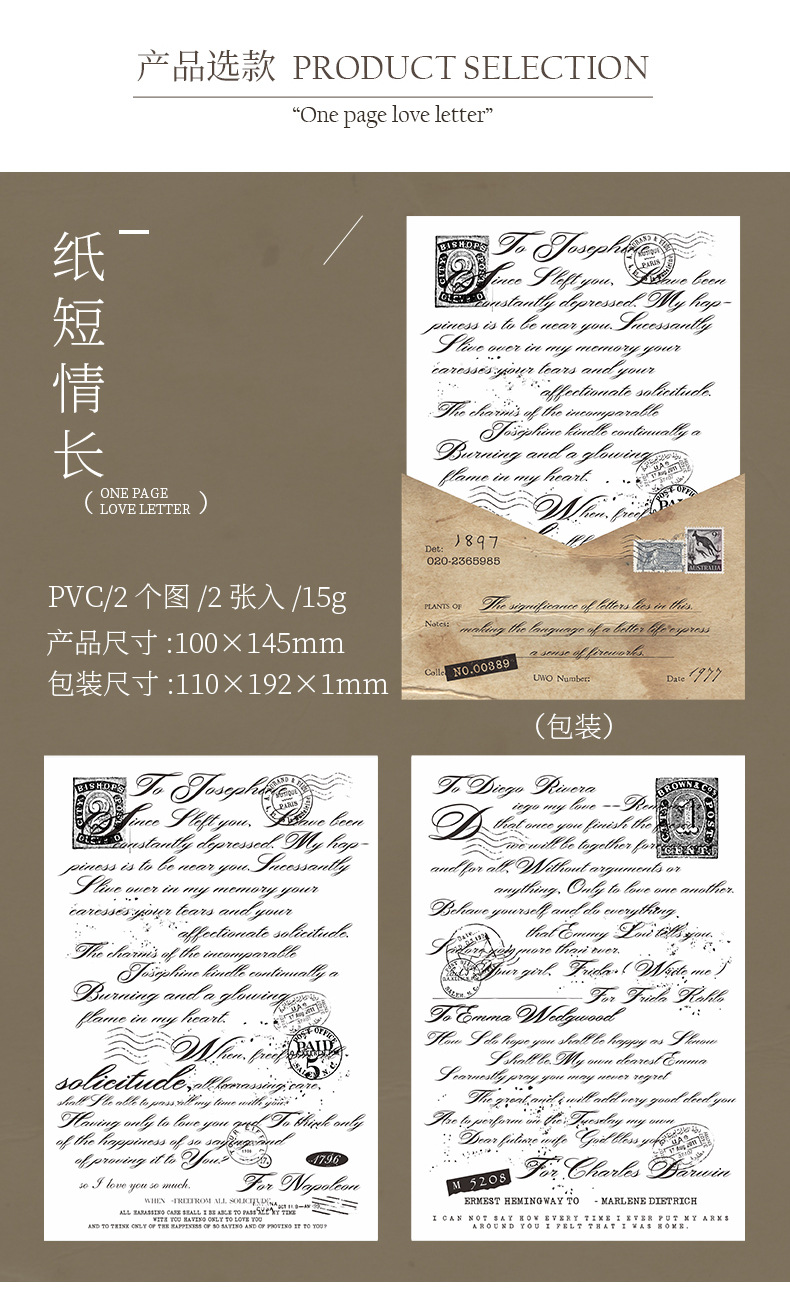 产品选款 PRODUCT SELECTION
“One page love letter”
纸短情长
（ ONE PAGE
LOVE LETTER ）
PVC/2 个图 /2 张入 /15g
产品尺寸 :100×145mm
包装尺寸 :110×192×1mm
BISHOPS
CITY
POST
2
To Josephine
PARIS
Since I left you, I have been
constantly depressed. My hap-
piness is to be near you. Incessantly
I live over in my memory your
caresses, your tears and your
affectionate solicitude.
The charms of the incomparable
Josephine kindle continually a
Burning and a glowing
flame in my heart.
17 AUG 2011
POST-OFFI
When, free
Det: 1897
020-2365985
AUSTRALIA
PLANTS OF The significance of letters lies in this.
Notes: making the language of a letter life express
a sense of fireworks.
Colle NO.00389
UWO Number:
Date 1977
（包装）
BISHOPS
CITY
POST
2
To Josephine
PARIS
Since I left you, I have been
constantly depressed. My hap-
piness is to be near you. Incessantly
I live over in my memory your
caresses, your tears and your
affectionate solicitude.
The charms of the incomparable
Josephine kindle continually a
Burning and a glowing
flame in my heart.
17 AUG 2011
POST-OFFICE
PAID
5
When, free from all
solicitude, all harassing care,
shall I be able to pass all my time with you?
Having only to love you and To think only
of the happiness of so saying and
of proving it to You.
1796
so I love you so much. For Napoleon
WHEN -FREEFROM ALL SOLICITUDE,
ALL HARASSING CARE SHALL I BE ABLE TO PASS ALL MY TIME
WITH YOU HAVING ONLY TO LOVE YOU
AND TO THINK ONLY OF THE HAPPINESS OF SO SAYING AND OF PROVING IT TO YOU?
To Diego Rivera
BROWN & CO'S
CITY
POST
1
CENT.
Diego my love --Rem
that once you finish the f
we will be together for
and for all, Without arguments or
anything, Only to love one another.
Behave yourself and do everything
that Emmy Lou tells you.
I adore you more than ever.
Your girl, Frida (Write me)
For Frida Kahlo
To Emma Wedgwood
How I do hope you shall be happy as I know
I shall be. My own dearest Emma
I earnestly pray you may never regret
The great and i will add very good deed you
Are to perform on the Tuesday my own
Dear future wife God bless you
17 AUG 2011
M 5208
For Charles Darwin
ERMEST HEMINGWAY TO - MARLENE DIETRICH
I CAN NOT SAY HOW EVERY TIME I EVER PUT MY ARMS
AROUND YOU I FELT THAT I WAS HOME.